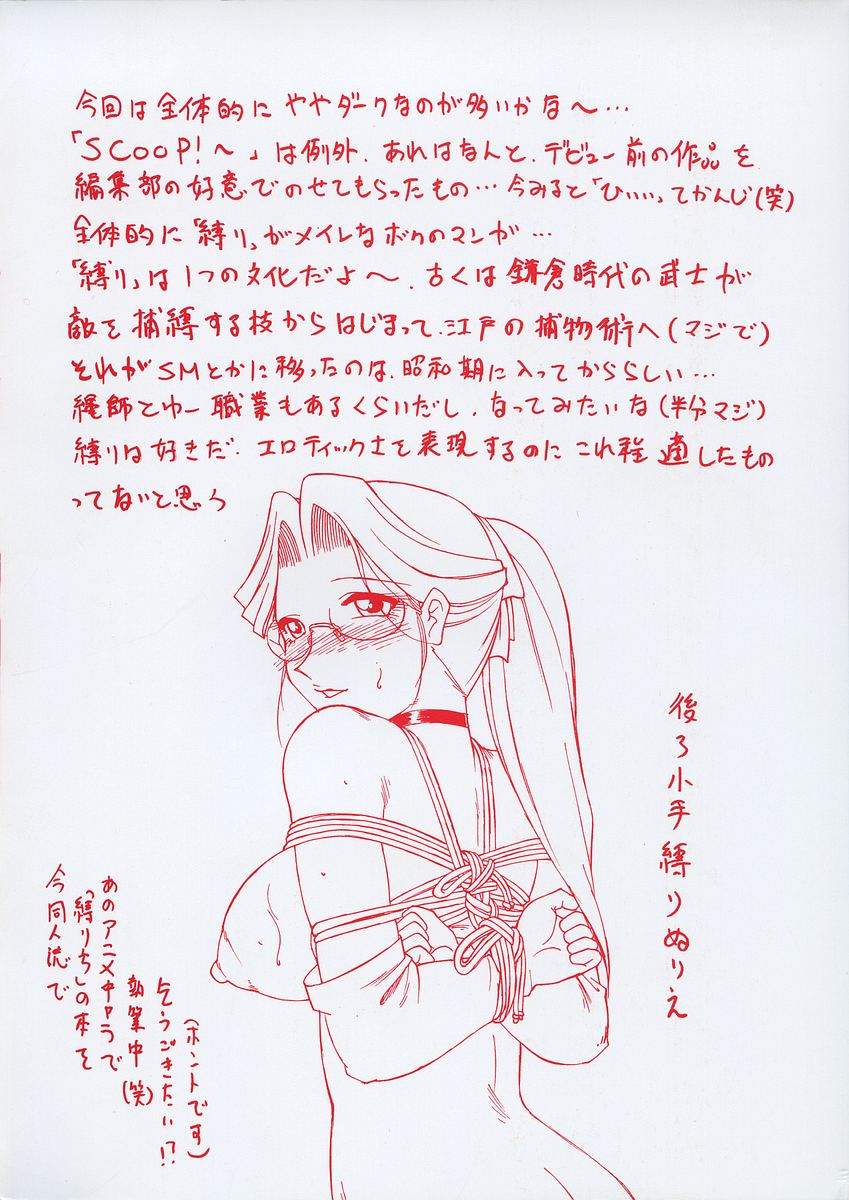 今回は全体的に ややダークなのが多いかな〜…
「SCOOP!〜」は例外、あれはなんと、デビュー前の作品を
編集部の好意でのせてもらったもの… 今みると「ひぃぃぃ」てかんじ(笑)
全体的に「縛り」がメイレなボクのマンガ…
「縛り」は1つの文化だよ〜、古くは鎌倉時代の武士が
敵を捕縛する技からはじまって、江戸の捕物術へ(マジで)
それがSMとかに移ったのは、昭和期に入ってかららしい…
縄師とゆー職業もあるくらいだし、なってみたいな(半分マジ)
縛りは好きだ。エロティック士を表現するのにこれ程適したもの
ってないと思う
後ろ小手縛りぬりえ
今同人誌で
「縛りちしの本を
あのアニメキャラで
執筆中(笑)
乞うごきたい!?
(ホントです)